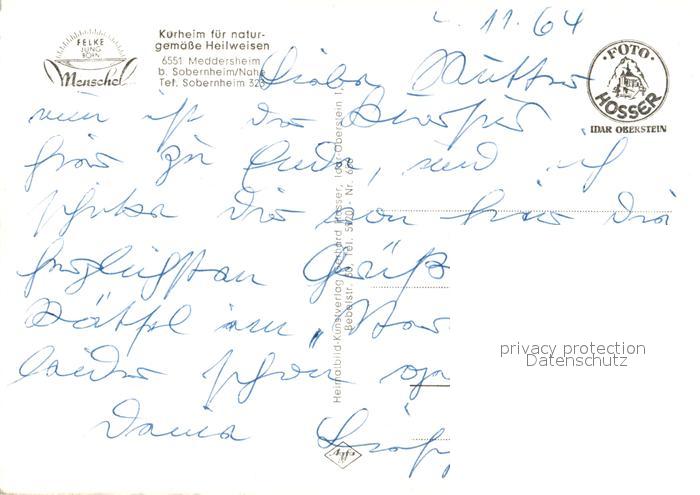 FELKE
JUNG
BORN
Menschel
Kurheim für natur-
gemäße Heilweisen
6551 Meddersheim
b. Sobernheim/Nahe
Tel. Sobernheim 323
11.64
·FOTO·
HOSSER
IDAR OBERSTEIN
Liebe Mutter
nun ist die
hier zu Ende, und ich
schicke Dir von hier die
herzlichsten Grüß
am
leider schon
Deine
Heimatbild-Kunstverlag Gerhard Hosser, Idar-Oberstein 1,
privacy protection
Datenschutz